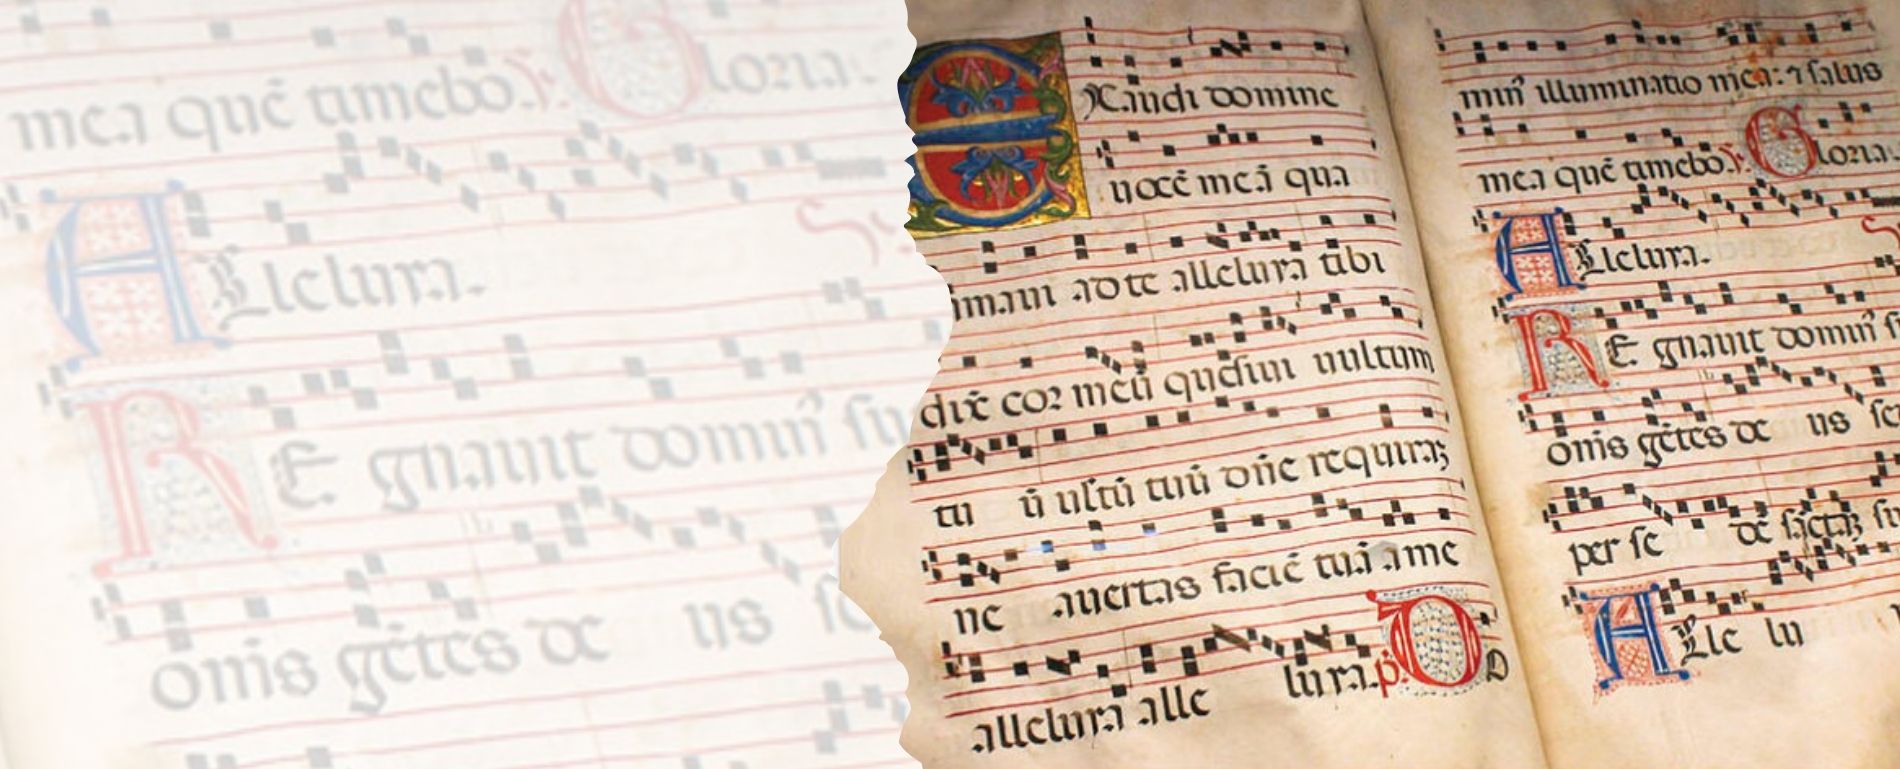 mea quē timebo. ℣. Gloria.
Alleluya.
REgnauit domin̄ su
om̄is gētes de us se
EXaudi domine
uocē meā qua
maui ad te alleluya tibi
dix̄ cor meū quesiui uultum
tu ū uultū tuū dn̄e requirā
ne auertas faciē tuā a me
alleluya alle luya. p̄. D D
min̄ illuminatio mea: ⁊ salus
mea quē timebo. ℣. Gloria
ALleluya.
REgnauit domin̄ s
om̄is gētes de us se
per se de sāctā su
ALle lu